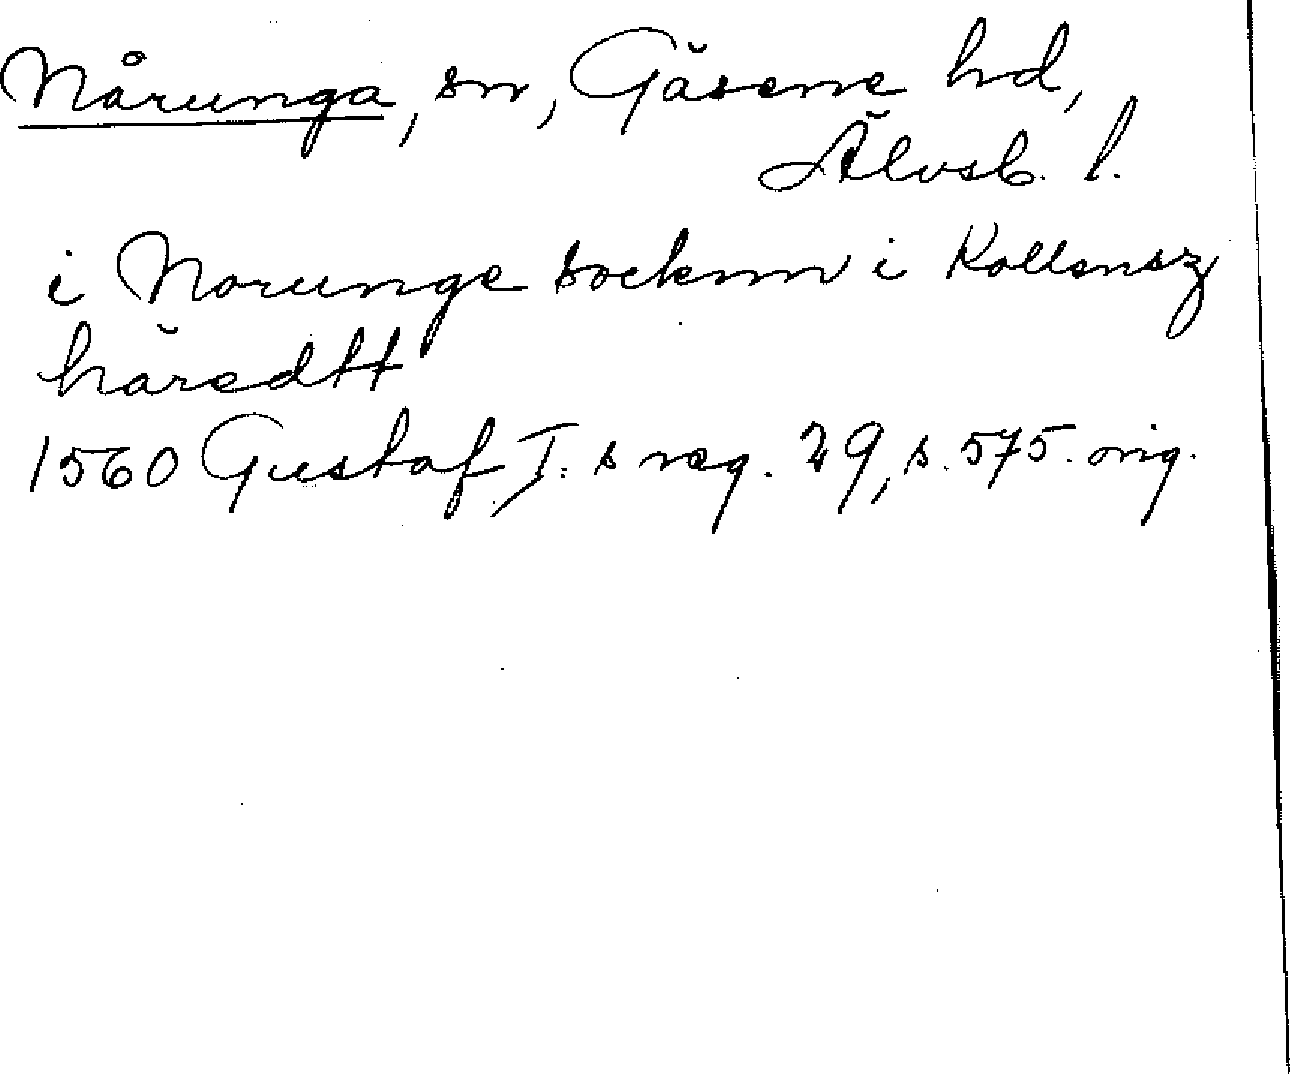 Nårunga, sn, Gäsene hd,
Älvsb. l.
i Norunge socknn i Kollensz
häredtt
1560 Gustaf I:s reg. 29, s. 575. orig.